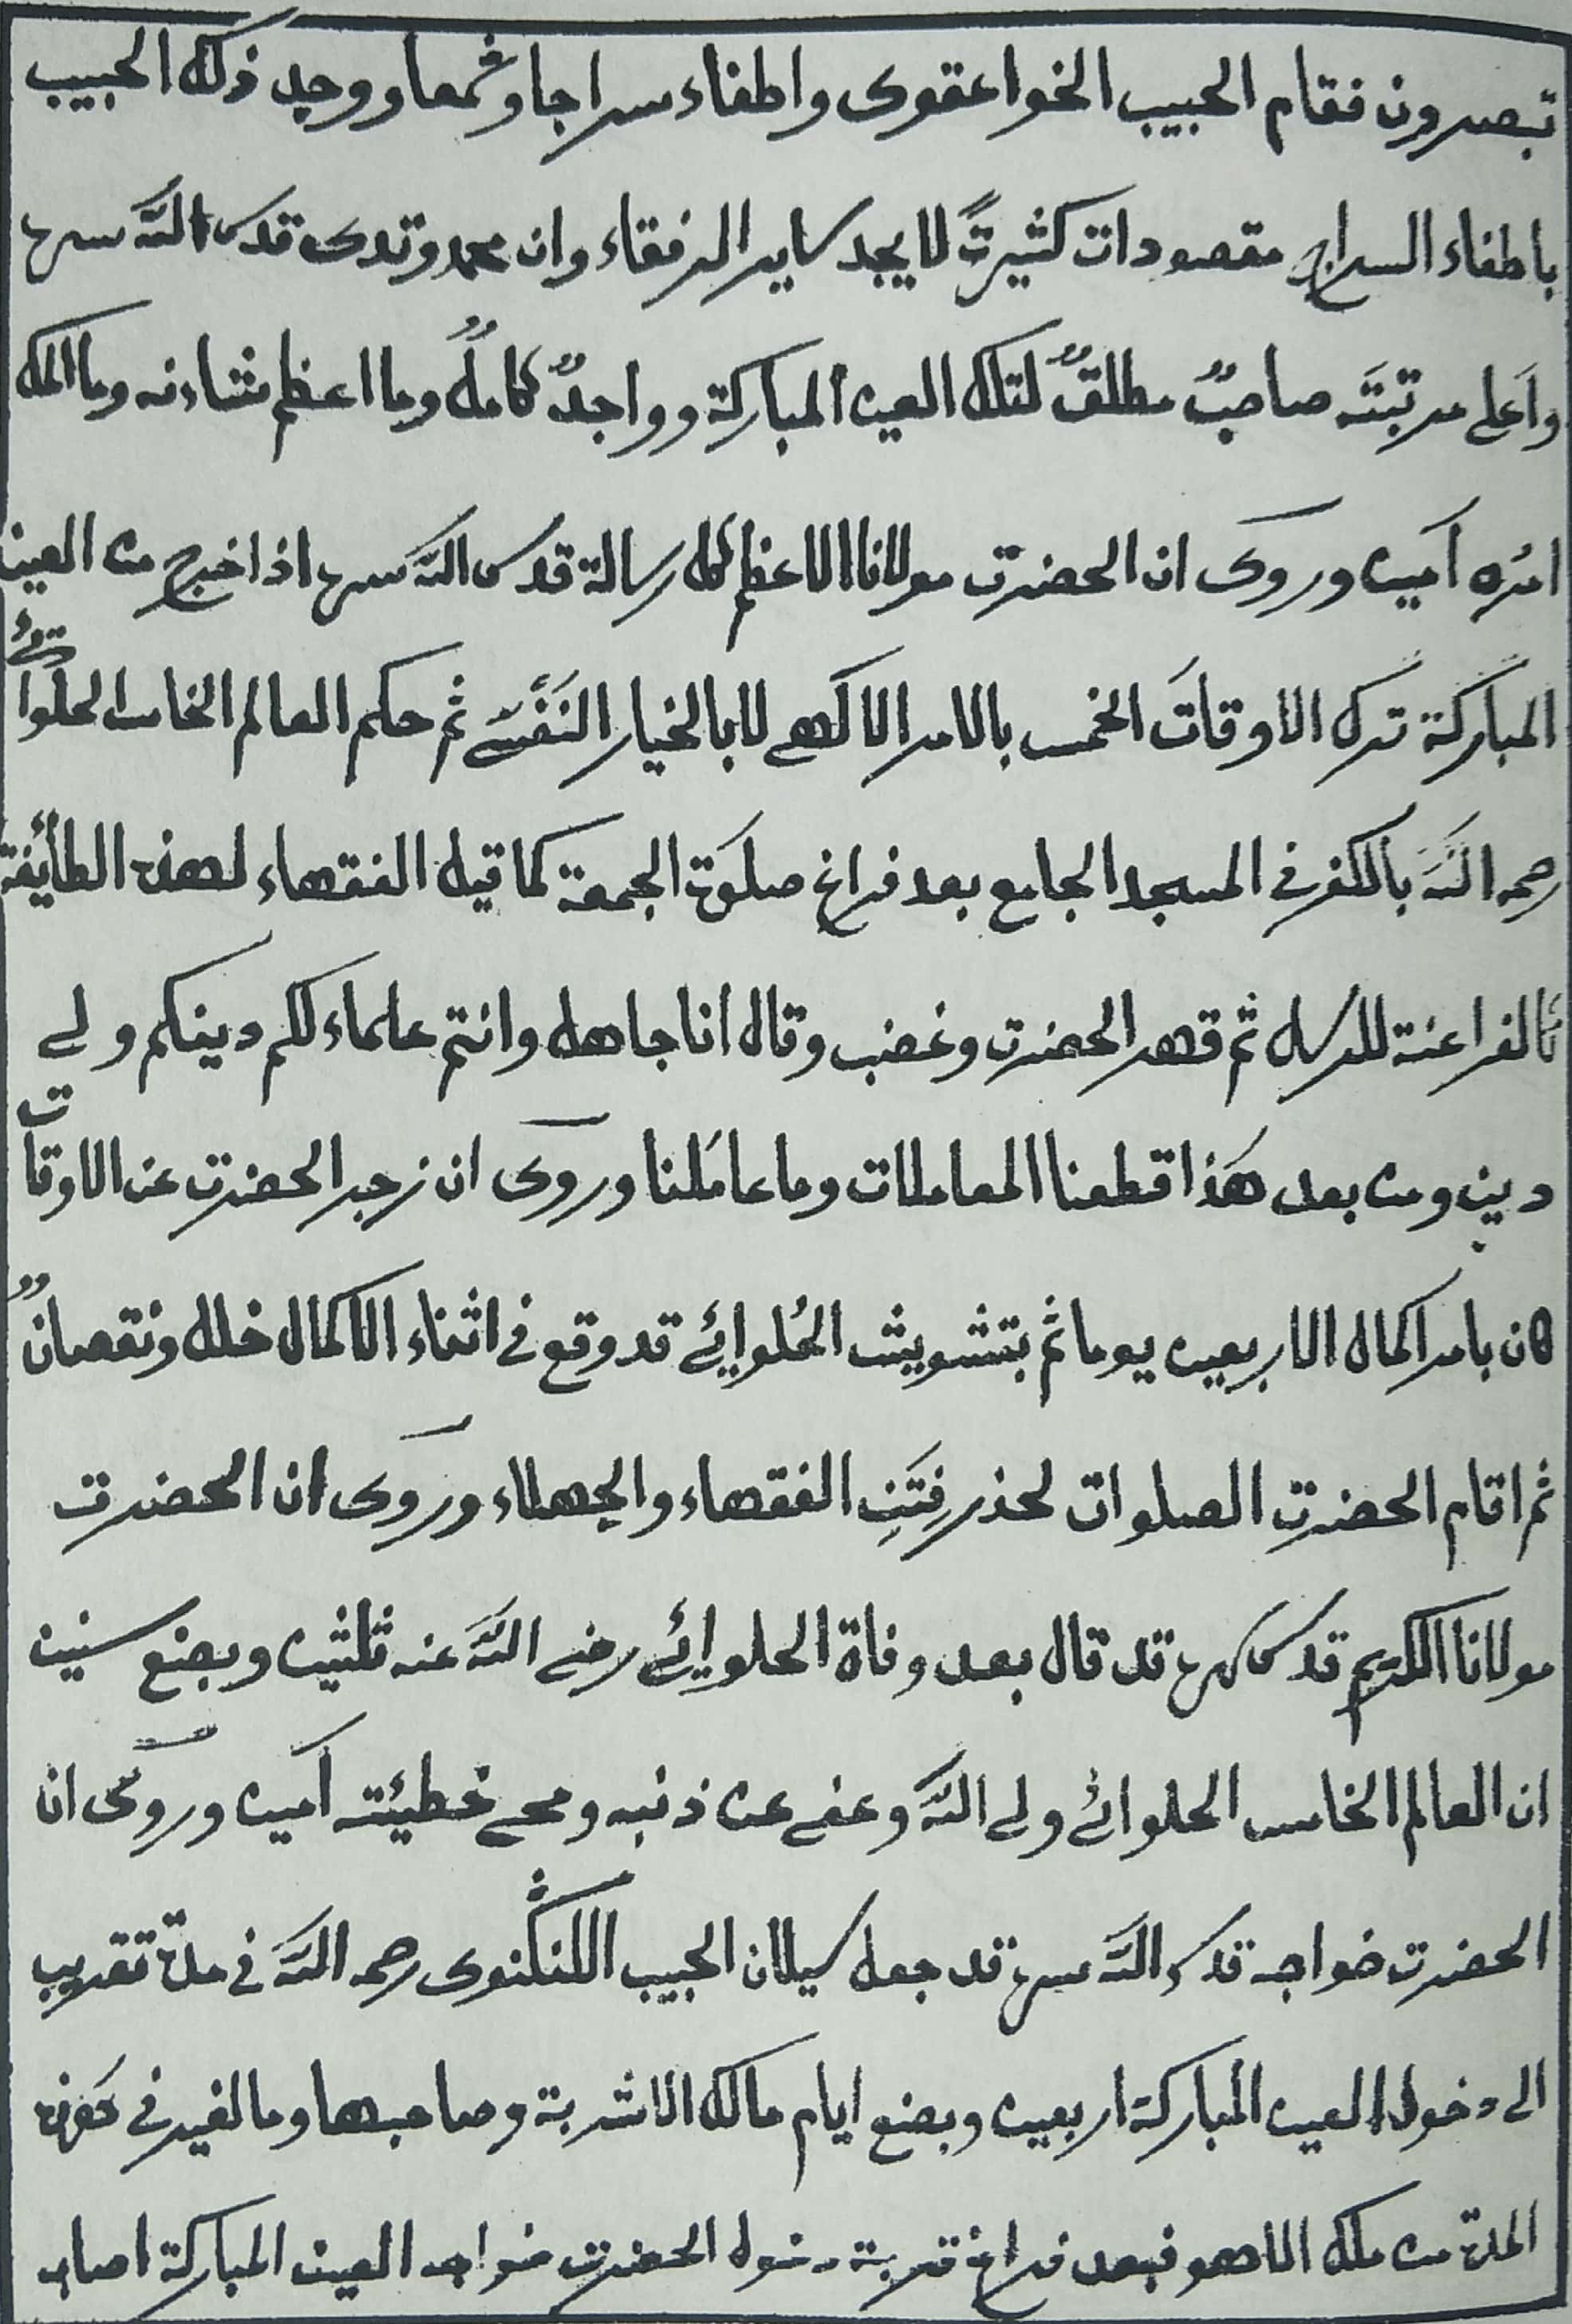 تبصرون فقام الحبيب الخواعقوى واطفاء سراجا وشمعا ووجد ذلك الحبيب
باطفاء السراج مقصودات كثيرتً لا يجد سايرالرفقاء وان محمد وتدى قدس اللّه سره
واَعلى مرتبتَه صاحبٌ مطلقٌ لتلك العين المبـاركة وواجدٌ كاملٌ وما اعظم شاءنه وما املك
امرُه آمين وروى ان الحضرت مولانا الاعظم كل رسالة قدس اللّه سره اذا خرج من العين
المباركة ترك الاوقاتَ الخمس بالامر الالٓهى لا بالخيار النَفْسَےِ ثم حكم العالم الخامس الحلوائے
رحمه اللَّه بالكفر فى المسجد الجامع بعد فراغ صلوٰة الجمعة كما قيل الفقهاء لهذه الطائفة
كا الفراعنة للرسل ثم قهر الحضرت وغضب وقال انا جاهل وانتم علماء لكم دينكم ولے
دين ومن بعد هٰذا قطعنا المعاملات وما عامَلنا وروى ان زجر الحضرت عن الاوقات
كان بامر اكمال الاربعين يوما ثم بتشويش الحُلوائے قد وقع فى اثناء الاكمال خلل ونقصانٌ
ثم اقام الحضرتِ الصلوات لحذر فِتَنِ الفقهاء والجهلاء وروى ان الحضرت
مولانا الكريم قدس سره قد قال بعد وفاة الحلوائے رضے اللّه عنه ثلثين وبضع سنين
ان العالم الخامس الحلوائے ولے اللّه وعفے عن ذنبه ومحے خطيئته آمين وروى ان
الحضرت خواجه قدس اللّه سره قد جعل سيلان الحبيب اللنكنوى رحمه اللّه فى مدة تقريب
الى دخول العين المباركة اربعين وبضع ايام مالك الاشربة وصاحبها وما لغير فى هٰذه
المدة من ملك الا هو فبعد فراغ قربة دخول الحضرت خواجه العين المباركة اصاب